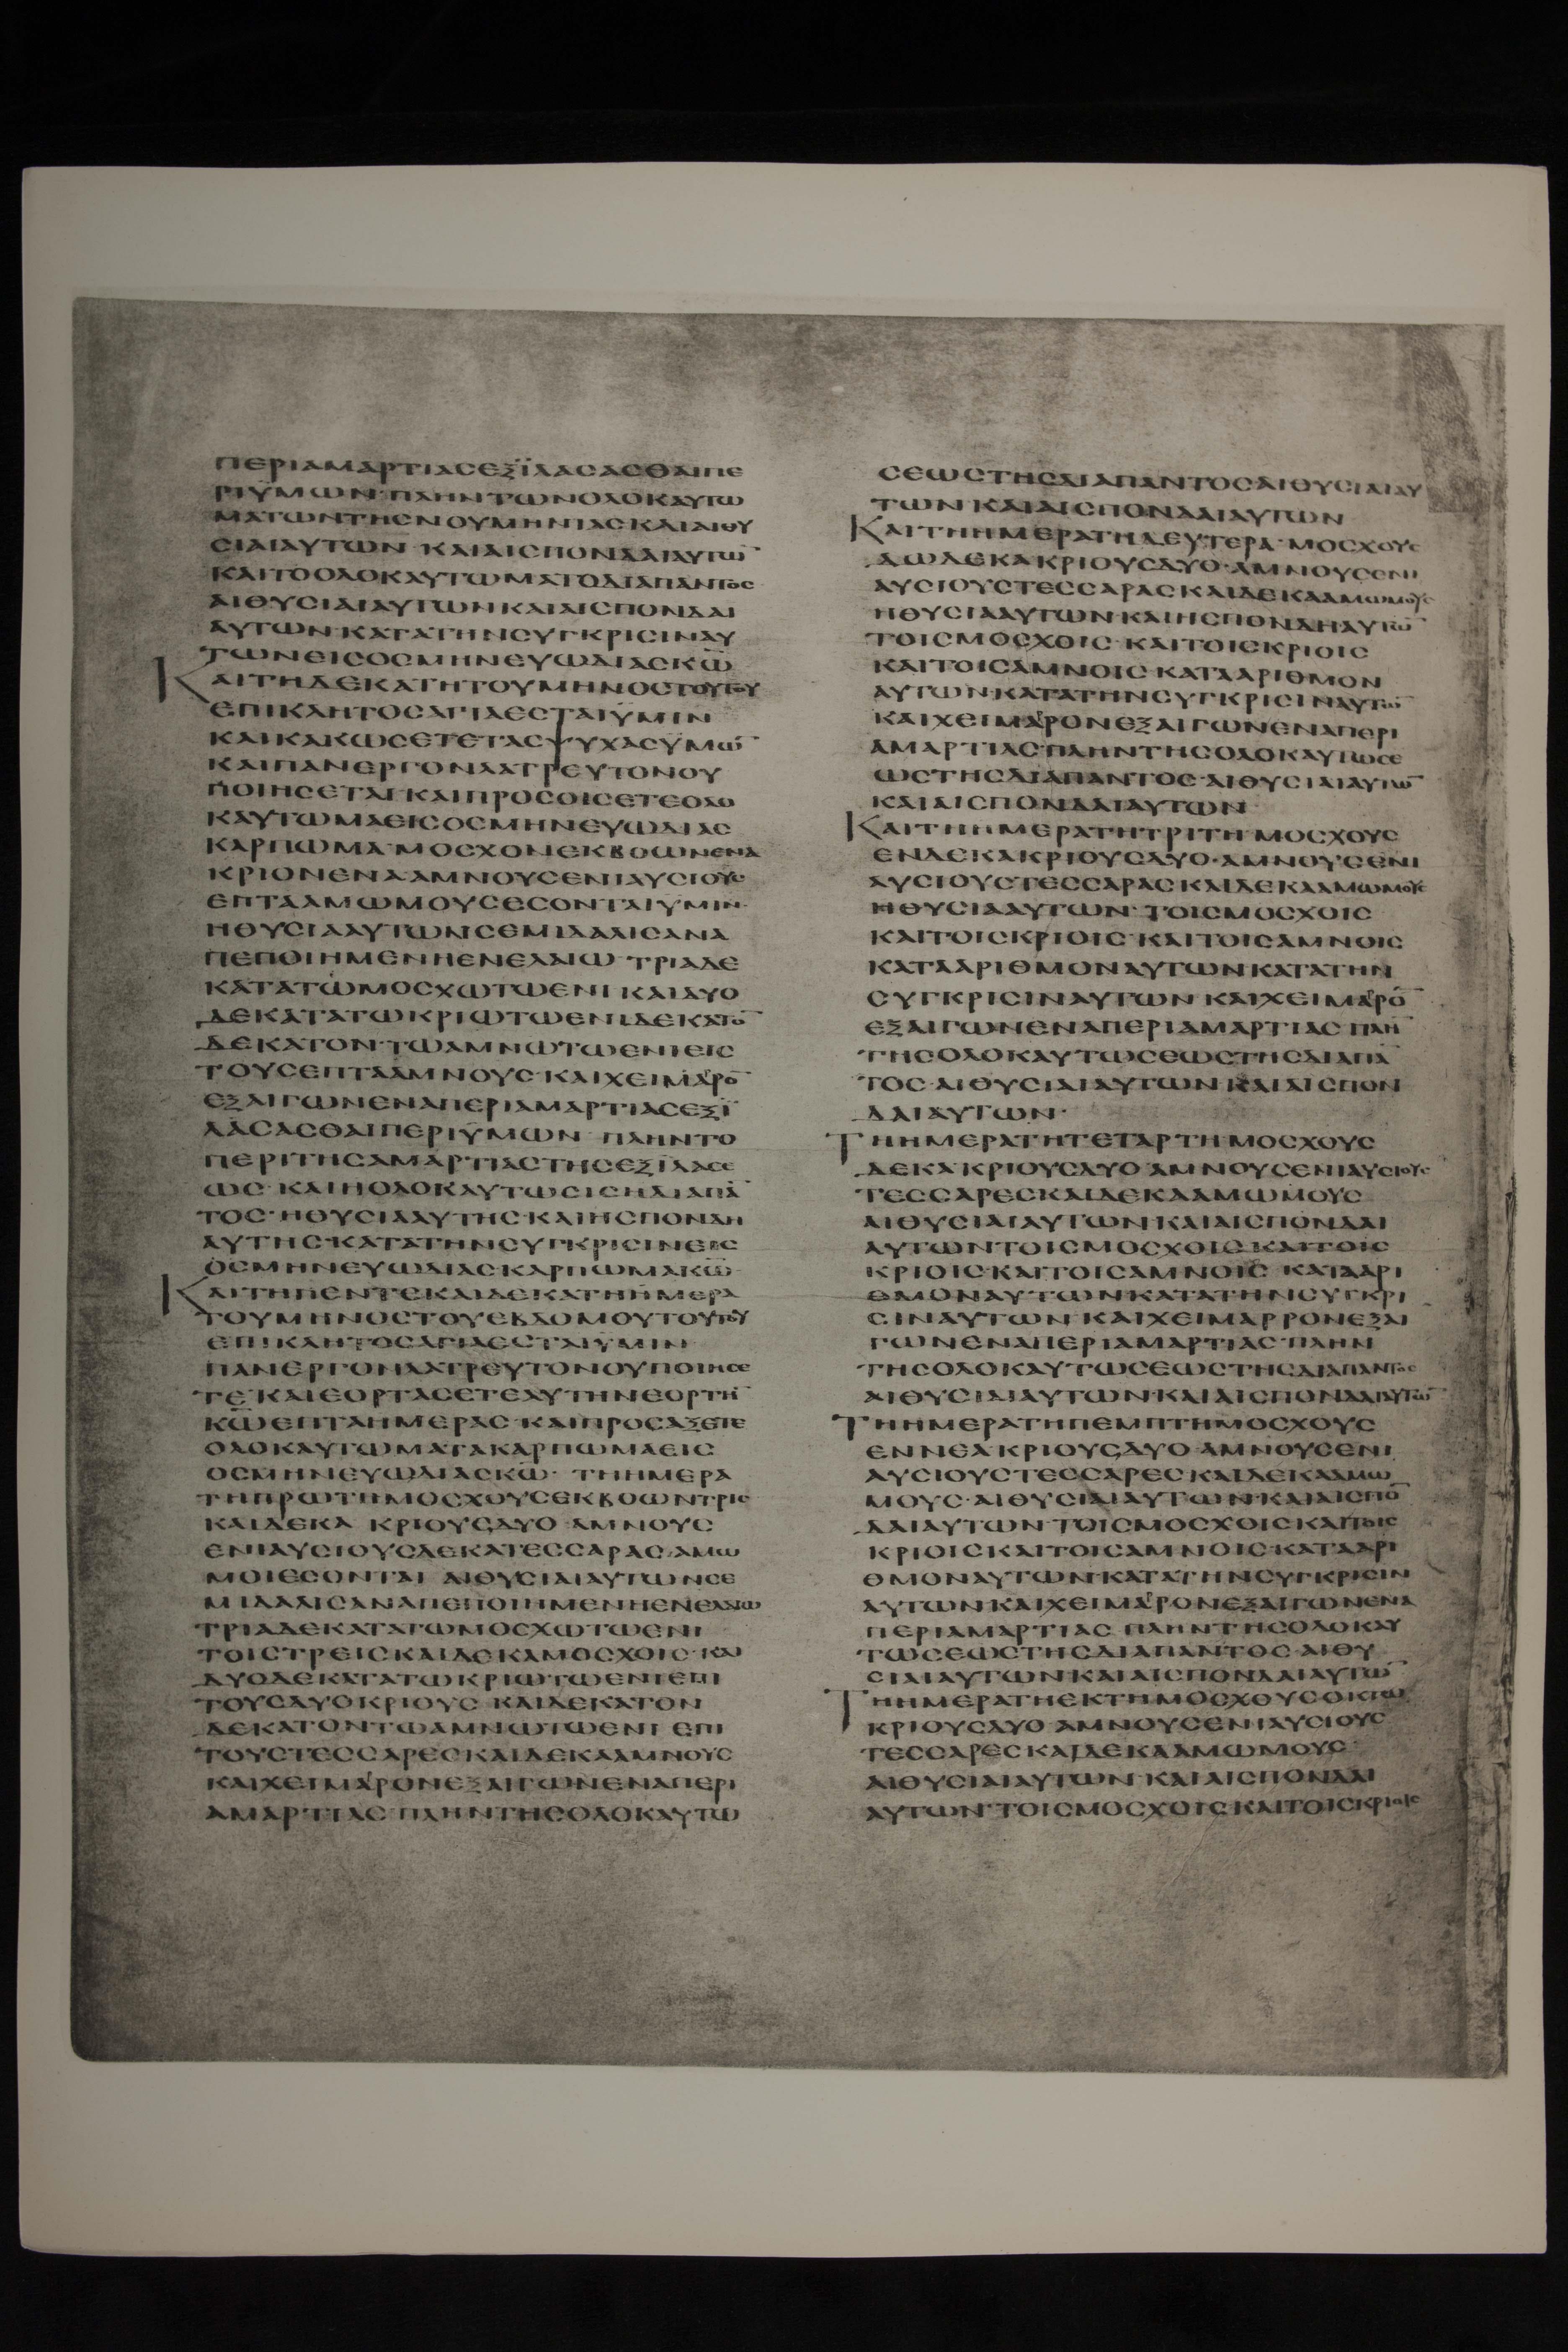 ΠΕΡΙΑΜΑΡΤΙΑСΕΞΪΛΑСΑСΘΑΙΠΕ
ΡΙΫΜΩΝ·ΠΛΗΝΤΩΝΟΛΟΚΑΥΤΩ
ΜΑΤΩΝΤΗСΝΟΥΜΗΝΙΑСΚΑΙΑΙΘΥ
СΙΑΙΑΥΤΩΝ ΚΑΙΑΙСΠΟΝΔΑΙΑΥΤΩ̅
ΚΑΙΤΟΟΛΟΚΑΥΤΩΜΑΤΟΔΙΑΠΑΝΤΟС
ΑΙΘΥСΙΑΙΑΥΤΩΝΚΑΙΑΙСΠΟΝΔΑΙ
ΑΥΤΩΝ·ΚΑΤΑΤΗΝСΥΓΚΡΙСΙΝΑΥ
ΤΩΝΕΙСΟСΜΗΝΕΥΩΔΙΑСΚΩ̅
ΚΑΙΤΗΔΕΚΑΤΗΤΟΥΜΗΝΟСΤΟΥΤΟΥ
ΕΠΙΚΛΗΤΟСΑΓΙΑΕСΤΑΙΫΜΙΝ
ΚΑΙΚΑΚΩСΕΤΕΤΑСΨΥΧΑСΫΜΩ̅
ΚΑΙΠΑΝΕΡΓΟΝΛΑΤΡΕΥΤΟΝΟΥ
ΠΟΙΗСΕΤΑΙ·ΚΑΙΠΡΟСΟΙСΕΤΕΟΛΟ
ΚΑΥΤΩΜΑΕΙСΟСΜΗΝΕΥΩΔΙΑС
ΚΑΡΠΩΜΑ·ΜΟСΧΟΝΕΚΒΟΩΝΕΝΑ
ΚΡΙΟΝΕΝΑΑΜΝΟΥСΕΝΙΑΥСΙΟΥС
ΕΠΤΑΑΜΩΜΟΥСΕСΟΝΤΑΙΥΜΙΝ·
ΗΘΥСΙΑΑΥΤΩΝСΕΜΙΔΑΛΙСΑΝΑ
ΠΕΠΟΙΗΜΕΝΗΕΝΕΛΑΙΩ·ΤΡΙΑΔΕ
ΚΑΤΑΤΩΜΟСΧΩΤΩΕΝΙ ΚΑΙΔΥΟ
ΔΕΚΑΤΑΤΩΚΡΙΩΤΩΕΝΙΔΕΚΑΤΟ̅
ΔΕΚΑΤΟΝ·ΤΩΑΜΝΩΤΩΕΝΙΕΙС
ΤΟΥСΕΠΤΑΑΜΝΟΥС·ΚΑΙΧΕΙΜΑΡΟ̅
ΕΞΑΙΓΩΝΕΝΑΠΕΡΙΑΜΑΡΤΙΑСΕΞΪ
ΛΑСΑСΘΑΙΠΕΡΙΫΜΩΝ·ΠΛΗΝΤΟ
ΠΕΡΙΤΗСΑΜΑΡΤΙΑСΤΗСΕΞΙΛΑСΕ
ΩС·ΚΑΙΗΟΛΟΚΑΥΤΩСΙСΗΔΙΑΠΑ̅
ΤΟС·ΗΘΥСΙΑΑΥΤΗС·ΚΑΙΗСΠΟΝΔΗ
ΑΥΤΗС·ΚΑΤΑΤΗΝСΥΓΚΡΙСΙΝΕΙС
ΟСΜΗΝΕΥΩΔΙΑС·ΚΑΡΠΩΜΑΚΩ̅
ΚΑΙΤΗΠΕΝΤΕΚΑΙΔΕΚΑΤΗΗΜΕΡΑ
ΤΟΥΜΗΝΟСΤΟΥΕΒΔΟΜΟΥΤΟΥΤΟΥ
ΕΠΙΚΛΗΤΟСΑΓΙΑΕСΤΑΙΫΜΙΝ
ΠΑΝΕΡΓΟΝΛΑΤΡΕΥΤΟΝΟΥΠΟΙΗСΕ
ΤΕ·ΚΑΙΕΟΡΤΑСΕΤΕΑΥΤΗΝΕΟΡΤΗ̅
ΚΩ̅ΕΠΤΑΗΜΕΡΑС·ΚΑΙΠΡΟСΑΞΕΤΕ
ΟΛΟΚΑΥΤΩΜΑΤΑΚΑΡΠΩΜΑΕΙС
ΟСΜΗΝΕΥΩΔΙΑСΚΩ̅· ΤΗΗΜΕΡΑ
ΤΗΠΡΩΤΗΜΟСΧΟΥСΕΚΒΟΩΝΤΡΙС
ΚΑΙΔΕΚΑ ΚΡΙΟΥСΔΥΟ·ΑΜΝΟΥС
ΕΝΙΑΥСΙΟΥСΔΕΚΑΤΕССΑΡΑС·ΑΜΩ
ΜΟΙΕСΟΝΤΑΙ ΑΙΘΥСΙΑΙΑΥΤΩΝСΕ
ΜΙΔΑΛΙСΑΝΑΠΕΠΟΙΗΜΕΝΗΕΝΕΛΑΙΩ
ΤΡΙΑΔΕΚΑΤΑΤΩΜΟСΧΩΤΩΕΝΙ
ΤΟΙСΤΡΕΙСΚΑΙΔΕΚΑΜΟСΧΟΙС·ΚΑΙ
ΔΥΟΔΕΚΑΤΑΤΩΚΡΙΩΤΩΕΝΙΕΠΙ
ΤΟΥСΔΥΟΚΡΙΟΥС ΚΑΙΔΕΚΑΤΟΝ
ΔΕΚΑΤΟΝΤΩΑΜΝΩΤΩΕΝΙ ΕΠΙ
ΤΟΥСΤΕССΑΡΕСΚΑΙΔΕΚΑΑΜΝΟΥС
ΚΑΙΧΕΙΜΑΡΟΝΕΞΑΙΓΩΝΕΝΑΠΕΡΙ
ΑΜΑΡΤΙΑС·ΠΛΗΝΤΗСΟΛΟΚΑΥΤΩ
СΕΩСΤΗСΔΙΑΠΑΝΤΟСΑΙΘΥСΙΑΙΑΥ
ΤΩΝ·ΚΑΙΑΙСΠΟΝΔΑΙΑΥΤΩΝ
ΚΑΙΤΗΗΜΕΡΑΤΗΔΕΥΤΕΡΑ·ΜΟСΧΟΥС
ΔΩΔΕΚΑΚΡΙΟΥСΔΥΟ·ΑΜΝΟΥСΕΝΙ
ΑΥСΙΟΥСΤΕССΑΡΑСΚΑΙΔΕΚΑΑΜΩΜΟΥС
ΗΘΥСΙΑΑΥΤΩΝ·ΚΑΙΗСΠΟΝΔΗΑΥΤΩ̅
ΤΟΙСΜΟСΧΟΙС·ΚΑΙΤΟΙСΚΡΙΟΙС
ΚΑΙΤΟΙСΑΜΝΟΙС·ΚΑΤΑΑΡΙΘΜΟΝ
ΑΥΤΩΝ·ΚΑΤΑΤΗΝСΥΓΚΡΙСΙΝΑΥΤΩ̅
ΚΑΙΧΕΙΜΑΡΟΝΕΞΑΙΓΩΝΕΝΑΠΕΡΙ
ΑΜΑΡΤΙΑС·ΠΛΗΝΤΗСΟΛΟΚΑΥΤΩСΕ
ΩСΤΗСΔΙΑΠΑΝΤΟС·ΑΙΘΥСΙΑΙΑΥΤΩ̅
ΚΑΙΑΙСΠΟΝΔΑΙΑΥΤΩΝ·
ΚΑΙΤΗΗΜΕΡΑΤΗΤΡΙΤΗ·ΜΟСΧΟΥС
ΕΝΔΕΚΑΚΡΙΟΥСΔΥΟ·ΑΜΝΟΥСΕΝΙ
ΑΥСΙΟΥСΤΕССΑΡΑСΚΑΙΔΕΚΑΑΜΩΜΟΥС
ΗΘΥСΙΑΑΥΤΩΝ·ΤΟΙСΜΟСΧΟΙС
ΚΑΙΤΟΙСΚΡΙΟΙС·ΚΑΙΤΟΙСΑΜΝΟΙС
ΚΑΤΑΑΡΙΘΜΟΝΑΥΤΩΝΚΑΤΑΤΗΝ
СΥΓΚΡΙСΙΝΑΥΤΩΝ ΚΑΙΧΕΙΜΑΡΟ̅
ΕΞΑΙΓΩΝΕΝΑΠΕΡΙΑΜΑΡΤΙΑС ΠΛΗ̅
ΤΗСΟΛΟΚΑΥΤΩСΕΩСΤΗСΔΙΑΠΑ̅
ΤΟС·ΑΙΘΥСΙΑΙΑΥΤΩΝ·ΚΑΙΑΙСΠΟΝ
ΔΑΙΑΥΤΩΝ·
ΤΗΗΜΕΡΑΤΗΤΕΤΑΡΤΗΜΟСΧΟΥС
ΔΕΚΑ·ΚΡΙΟΥСΔΥΟ·ΑΜΝΟΥСΕΝΙΑΥСΙΟΥС
ΤΕССΑΡΕСΚΑΙΔΕΚΑΑΜΩΜΟΥС
ΑΙΘΥСΙΑΙΑΥΤΩΝΚΑΙΑΙСΠΟΝΔΑΙ
ΑΥΤΩΝΤΟΙСΜΟСΧΟΙС·ΚΑΙΤΟΙС
ΚΡΙΟΙС·ΚΑΙΤΟΙСΑΜΝΟΙС ΚΑΤΑΑΡΙ
ΘΜΟΝΑΥΤΩΝ·ΚΑΤΑΤΗΝСΥΓΚΡΙ
СΙΝΑΥΤΩΝ ΚΑΙΧΕΙΜΑΡΡΟΝΕΞΑΙ
ΓΩΝΕΝΑΠΕΡΙΑΜΑΡΤΙΑС·ΠΛΗΝ
ΤΗСΟΛΟΚΑΥΤΩСΕΩСΤΗСΔΙΑΠΑΝΤΟС
ΑΙΘΥСΙΑΙΑΥΤΩΝ·ΚΑΙΑΙСΠΟΝΔΑΙΑΥΤΩ̅
ΤΗΗΜΕΡΑΤΗΠΕΜΠΤΗΜΟСΧΟΥС
ΕΝΝΕΑ·ΚΡΙΟΥСΔΥΟ·ΑΜΝΟΥСΕΝΙ
ΑΥСΙΟΥСΤΕССΑΡΕСΚΑΙΔΕΚΑΑΜΩ
ΜΟΥС·ΑΙΘΥСΙΑΙΑΥΤΩΝ·ΚΑΙΑΙСΠΟ̅
ΔΑΙΑΥΤΩΝ·ΤΟΙСΜΟСΧΟΙСΚΑΙΤΟΙС
ΚΡΙΟΙСΚΑΙΤΟΙСΑΜΝΟΙС·ΚΑΤΑΑΡΙ
ΘΜΟΝΑΥΤΩΝ·ΚΑΤΑΤΗΝСΥΓΚΡΙСΙΝ
ΑΥΤΩΝΚΑΙΧΕΙΜΑΡΟΝΕΞΑΙΓΩΝΕΝΑ
ΠΕΡΙΑΜΑΡΤΙΑС ΠΛΗΝΤΗСΟΛΟΚΑΥ
ΤΩСΕΩСΤΗСΔΙΑΠΑΝΤΟС·ΑΙΘΥ
СΙΑΙΑΥΤΩΝΚΑΙΑΙСΠΟΝΔΑΙΑΥΤΩ̅
ΤΗΗΜΕΡΑΤΗΕΚΤΗΜΟСΧΟΥСΟΚΤΩ
ΚΡΙΟΥСΔΥΟ·ΑΜΝΟΥСΕΝΙΑΥСΙΟΥС
ΤΕССΑΡΕСΚΑΙΔΕΚΑΑΜΩΜΟΥС·
ΑΙΘΥСΙΑΙΑΥΤΩΝ·ΚΑΙΑΙСΠΟΝΔΑΙ
ΑΥΤΩΝ·ΤΟΙСΜΟСΧΟΙСΚΑΙΤΟΙСΚΡΙΟΙС